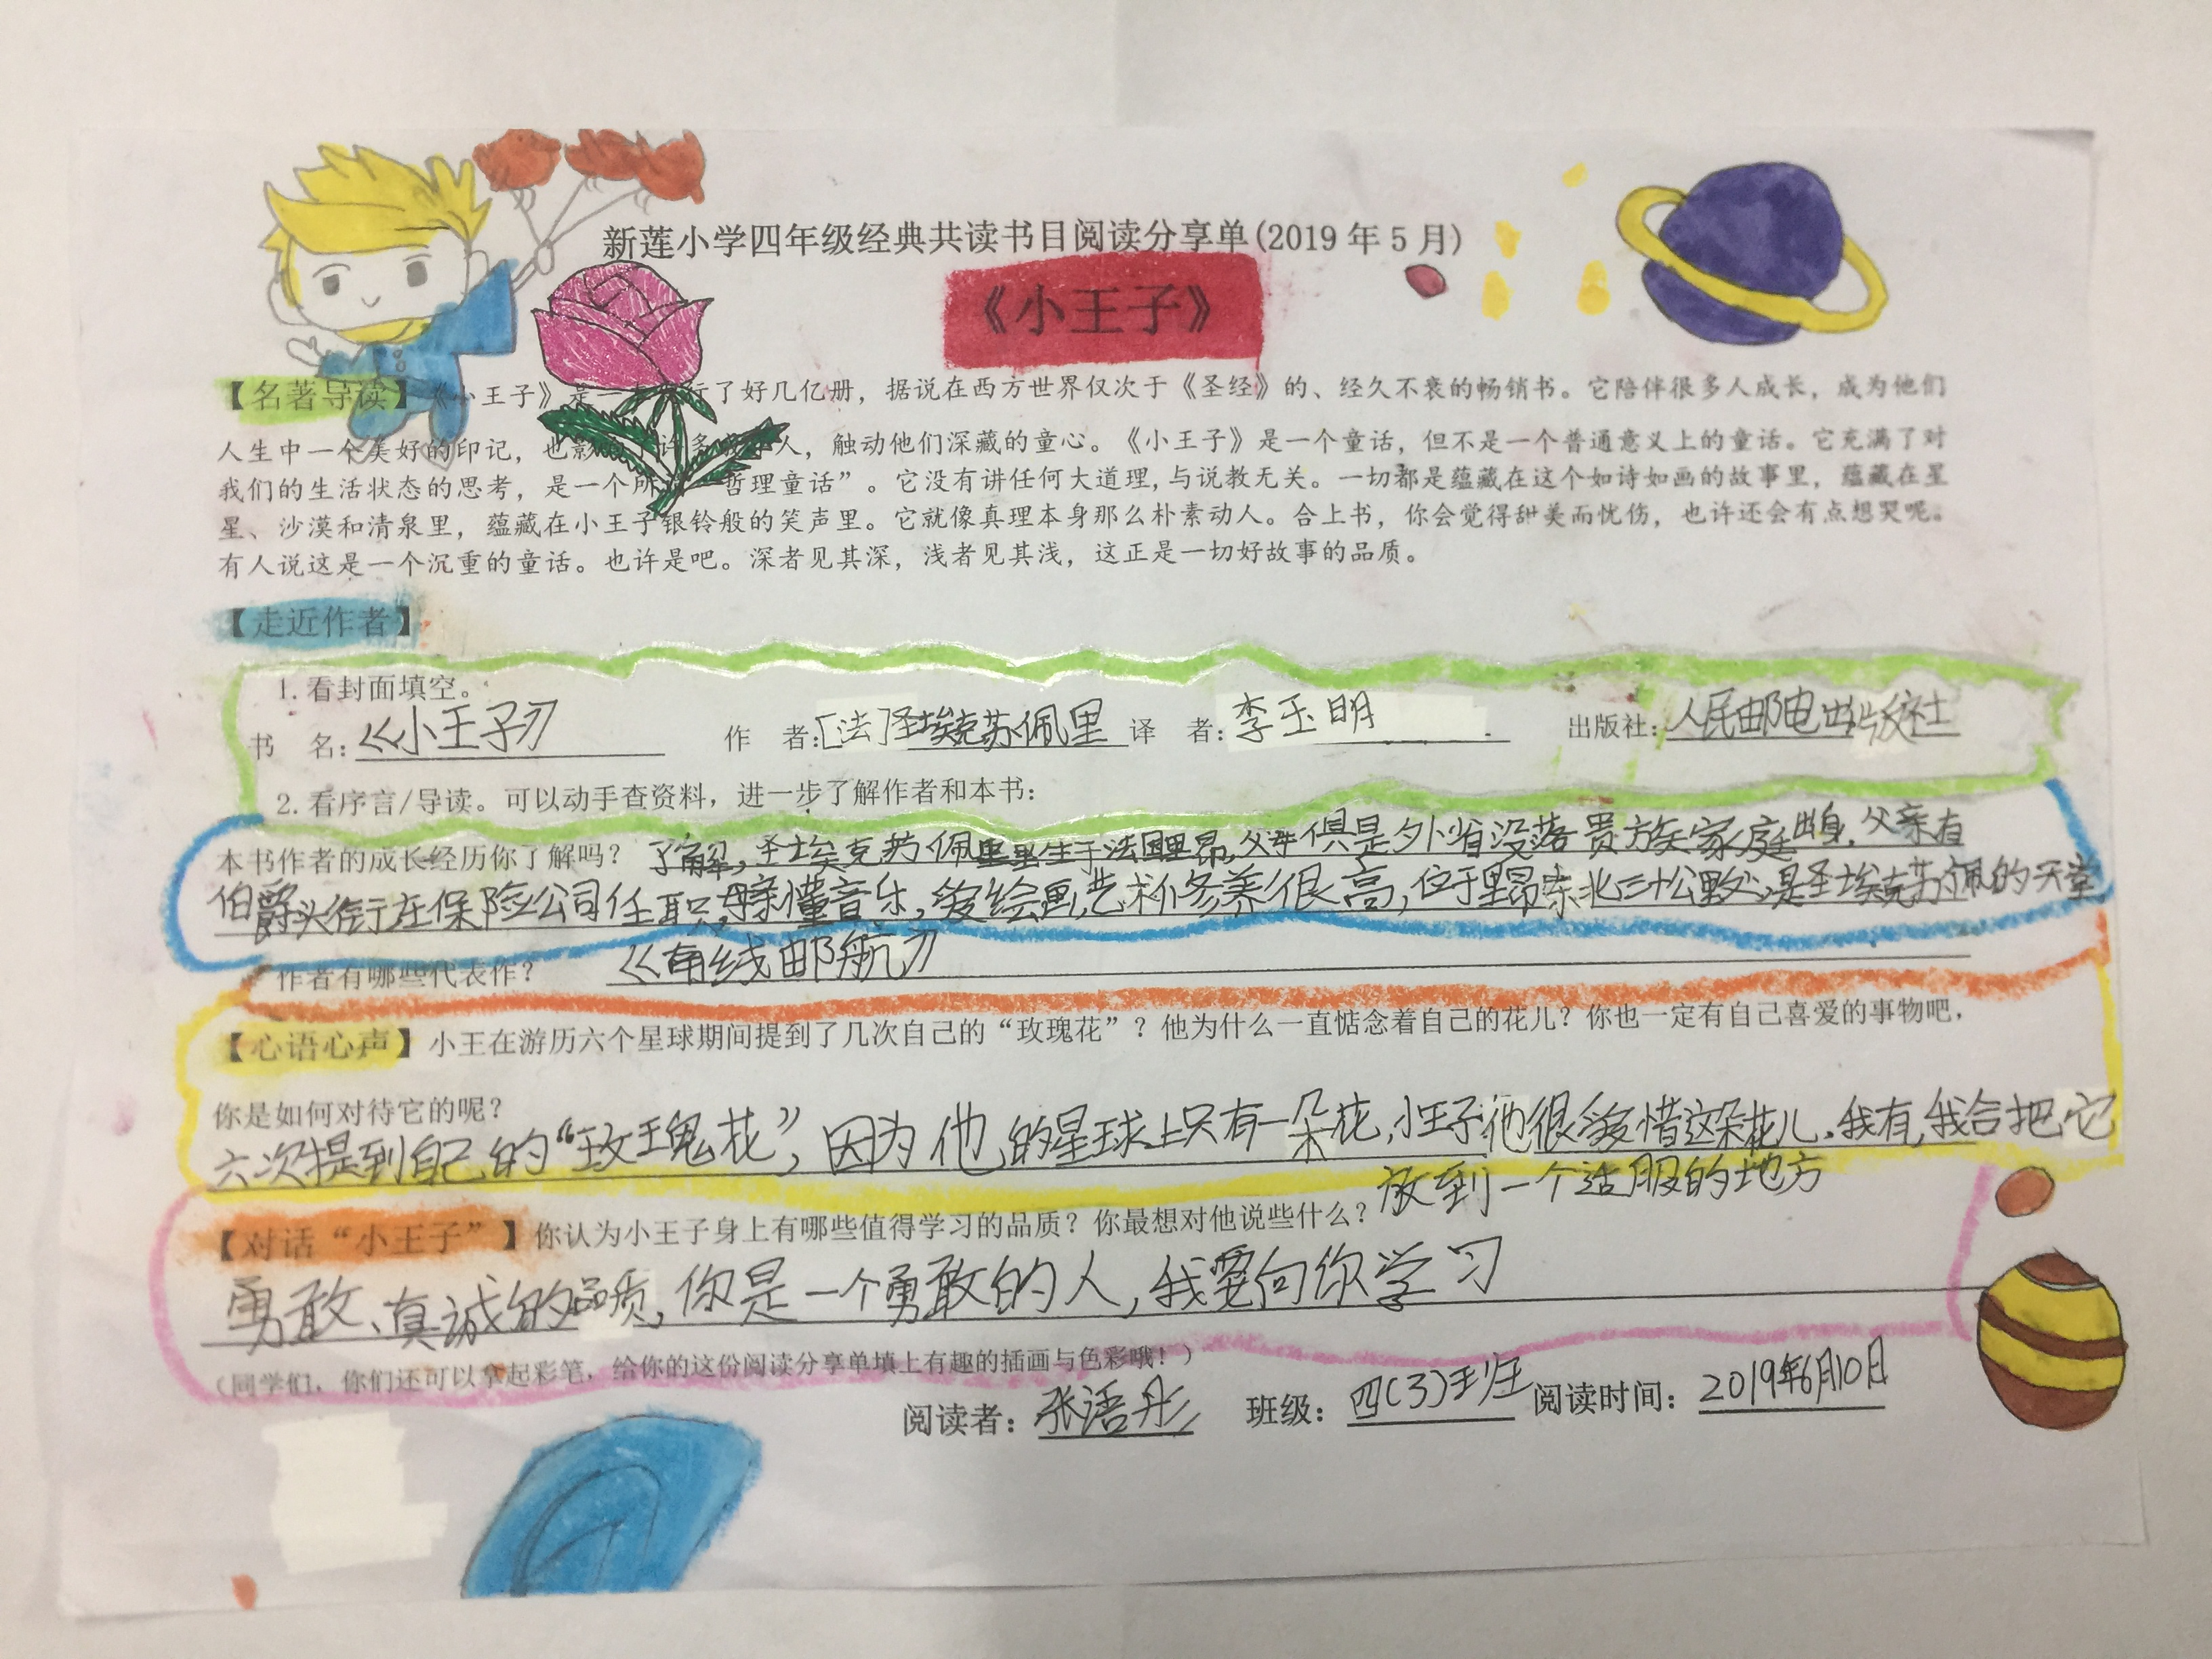 新莲小学四年级经典共读书目阅读分享单(2019年5月)
《小王子》
【名著导读】《小王子》是一行了好几亿册，据说在西方世界仅次于《圣经》的、经久不衰的畅销书。它陪伴很多人成长，成为他们
人生中一个美好的印记，也影许多人，触动他们深藏的童心。《小王子》是一个童话，但不是一个普通意义上的童话。它充满了对
我们的生活状态的思考，是一个所哲理童话”。它没有讲任何大道理,与说教无关。一切都是蕴藏在这个如诗如画的故事里，蕴藏在星
星、沙漠和清泉里，蕴藏在小王子银铃般的笑声里。它就像真理本身那么朴素动人。合上书，你会觉得甜美而忧伤，也许还会有点想哭呢。
有人说这是一个沉重的童话。也许是吧。深者见其深，浅者见其浅，这正是一切好故事的品质。
【走近作者】
1.看封面填空。
书 名:《小王子》 作 者:[法]圣埃克苏佩里 译 者:李玉明 出版社:人民邮电出版社
2.看序言/导读。可以动手查资料，进一步了解作者和本书：
本书作者的成长经历你了解吗？了解,圣埃克苏佩里生于法国里昂,父母俱是外省没落贵族家庭出身.父亲有
伯爵头衔在保险公司任职,母亲懂音乐,爱绘画,艺术修养很高,位于里昂东北三十公里处,是圣埃克苏佩的天堂
作者有哪些代表作？《南线邮航》
【心语心声】小王在游历六个星球期间提到了几次自己的“玫瑰花”？他为什么一直惦念着自己的花儿？你也一定有自己喜爱的事物吧，
你是如何对待它的呢？
六次提到自己的“玫瑰花”,因为他的星球上只有一朵花,小王子他很爱惜这朵花儿.我有,我会把它
放到一个适服的地方
【对话“小王子”】你认为小王子身上有哪些值得学习的品质？你最想对他说些什么？
勇敢、真诚的品质,你是一个勇敢的人,我要向你学习
（同学们，你们还可以拿起彩笔，给你的这份阅读分享单填上有趣的插画与色彩哦！）
阅读者：张语彤 班级：四(3)班 阅读时间：2019年6月10日